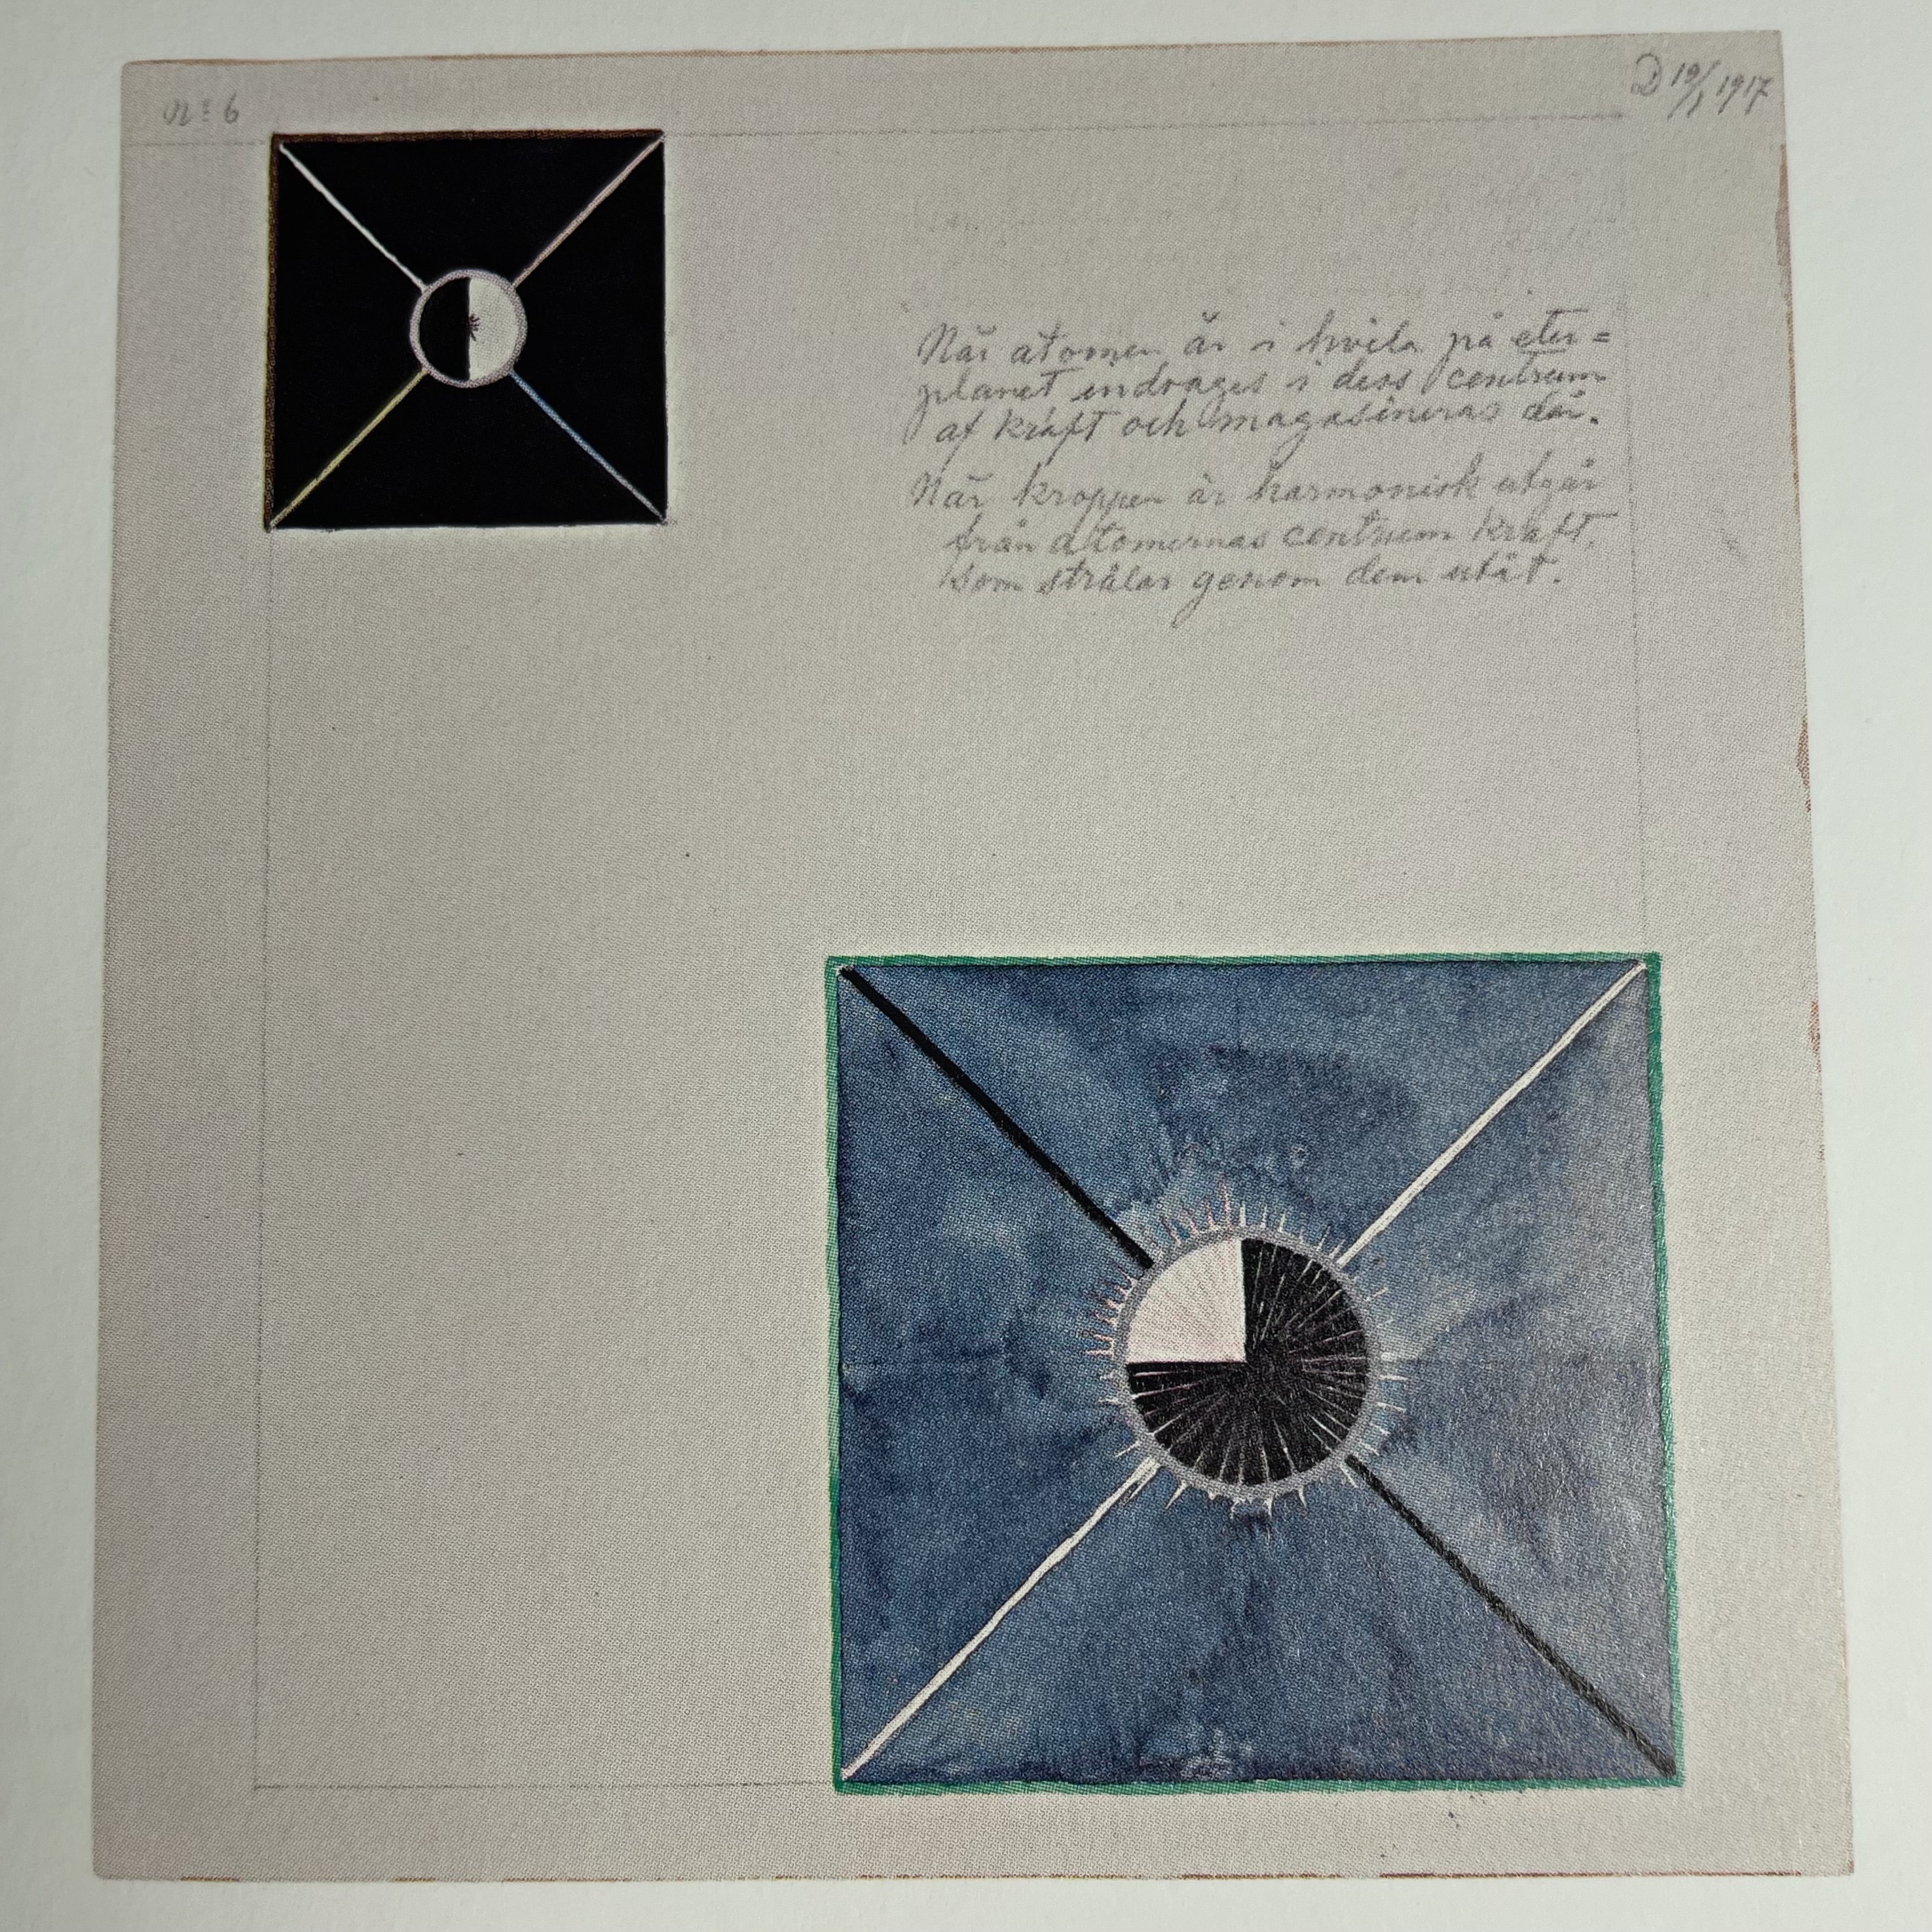 Nº 6
D 19/1 1917
När atomen är i hvila på eter=
planet indrages i dess centrum
af kraft och magasineras där.
När kroppen är harmonisk utgår
från atomernas centrum kraft,
som strålar genom dem utåt.